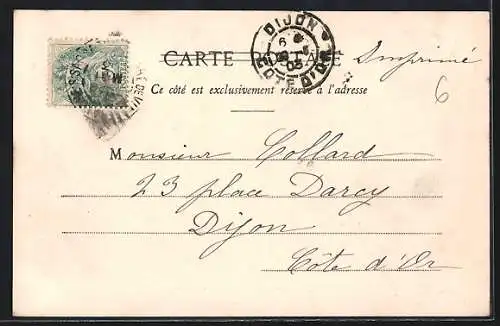 CARTE POSTALE Imprimé
DIJON
CÔTE D'OR
Ce côté est exclusivement réservé à l'adresse
6
Monsieur Collard
23 place Darcy
Dijon
Côte d'Or